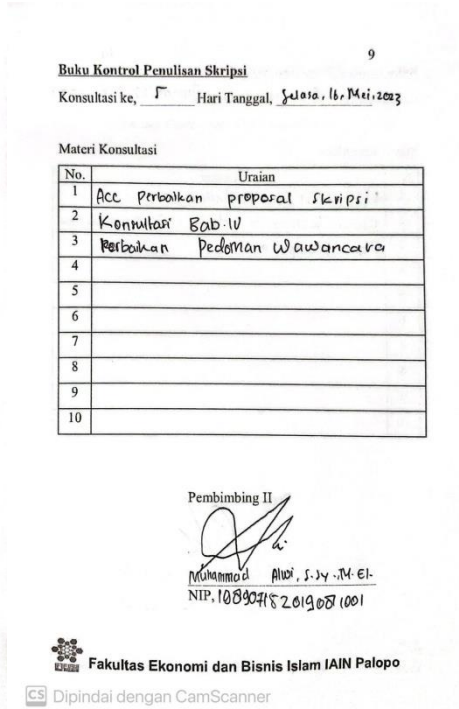 9
Buku Kontrol Penulisan Skripsi
Konsultasi ke, 5 Hari Tanggal, Selasa, 16, Mei, 2023
Materi Konsultasi
No. Uraian
1 Acc Perbaikan proposal skripsi
2 Konsultasi Bab.IV
3 Perbaikan Pedoman Wawancara
4
5
6
7
8
9
10
Pembimbing II
Muhammad Alwi, S.Sy.,M.EI.
NIP, 198907152019081001
Fakultas Ekonomi dan Bisnis Islam IAIN Palopo
CS Dipindai dengan CamScanner